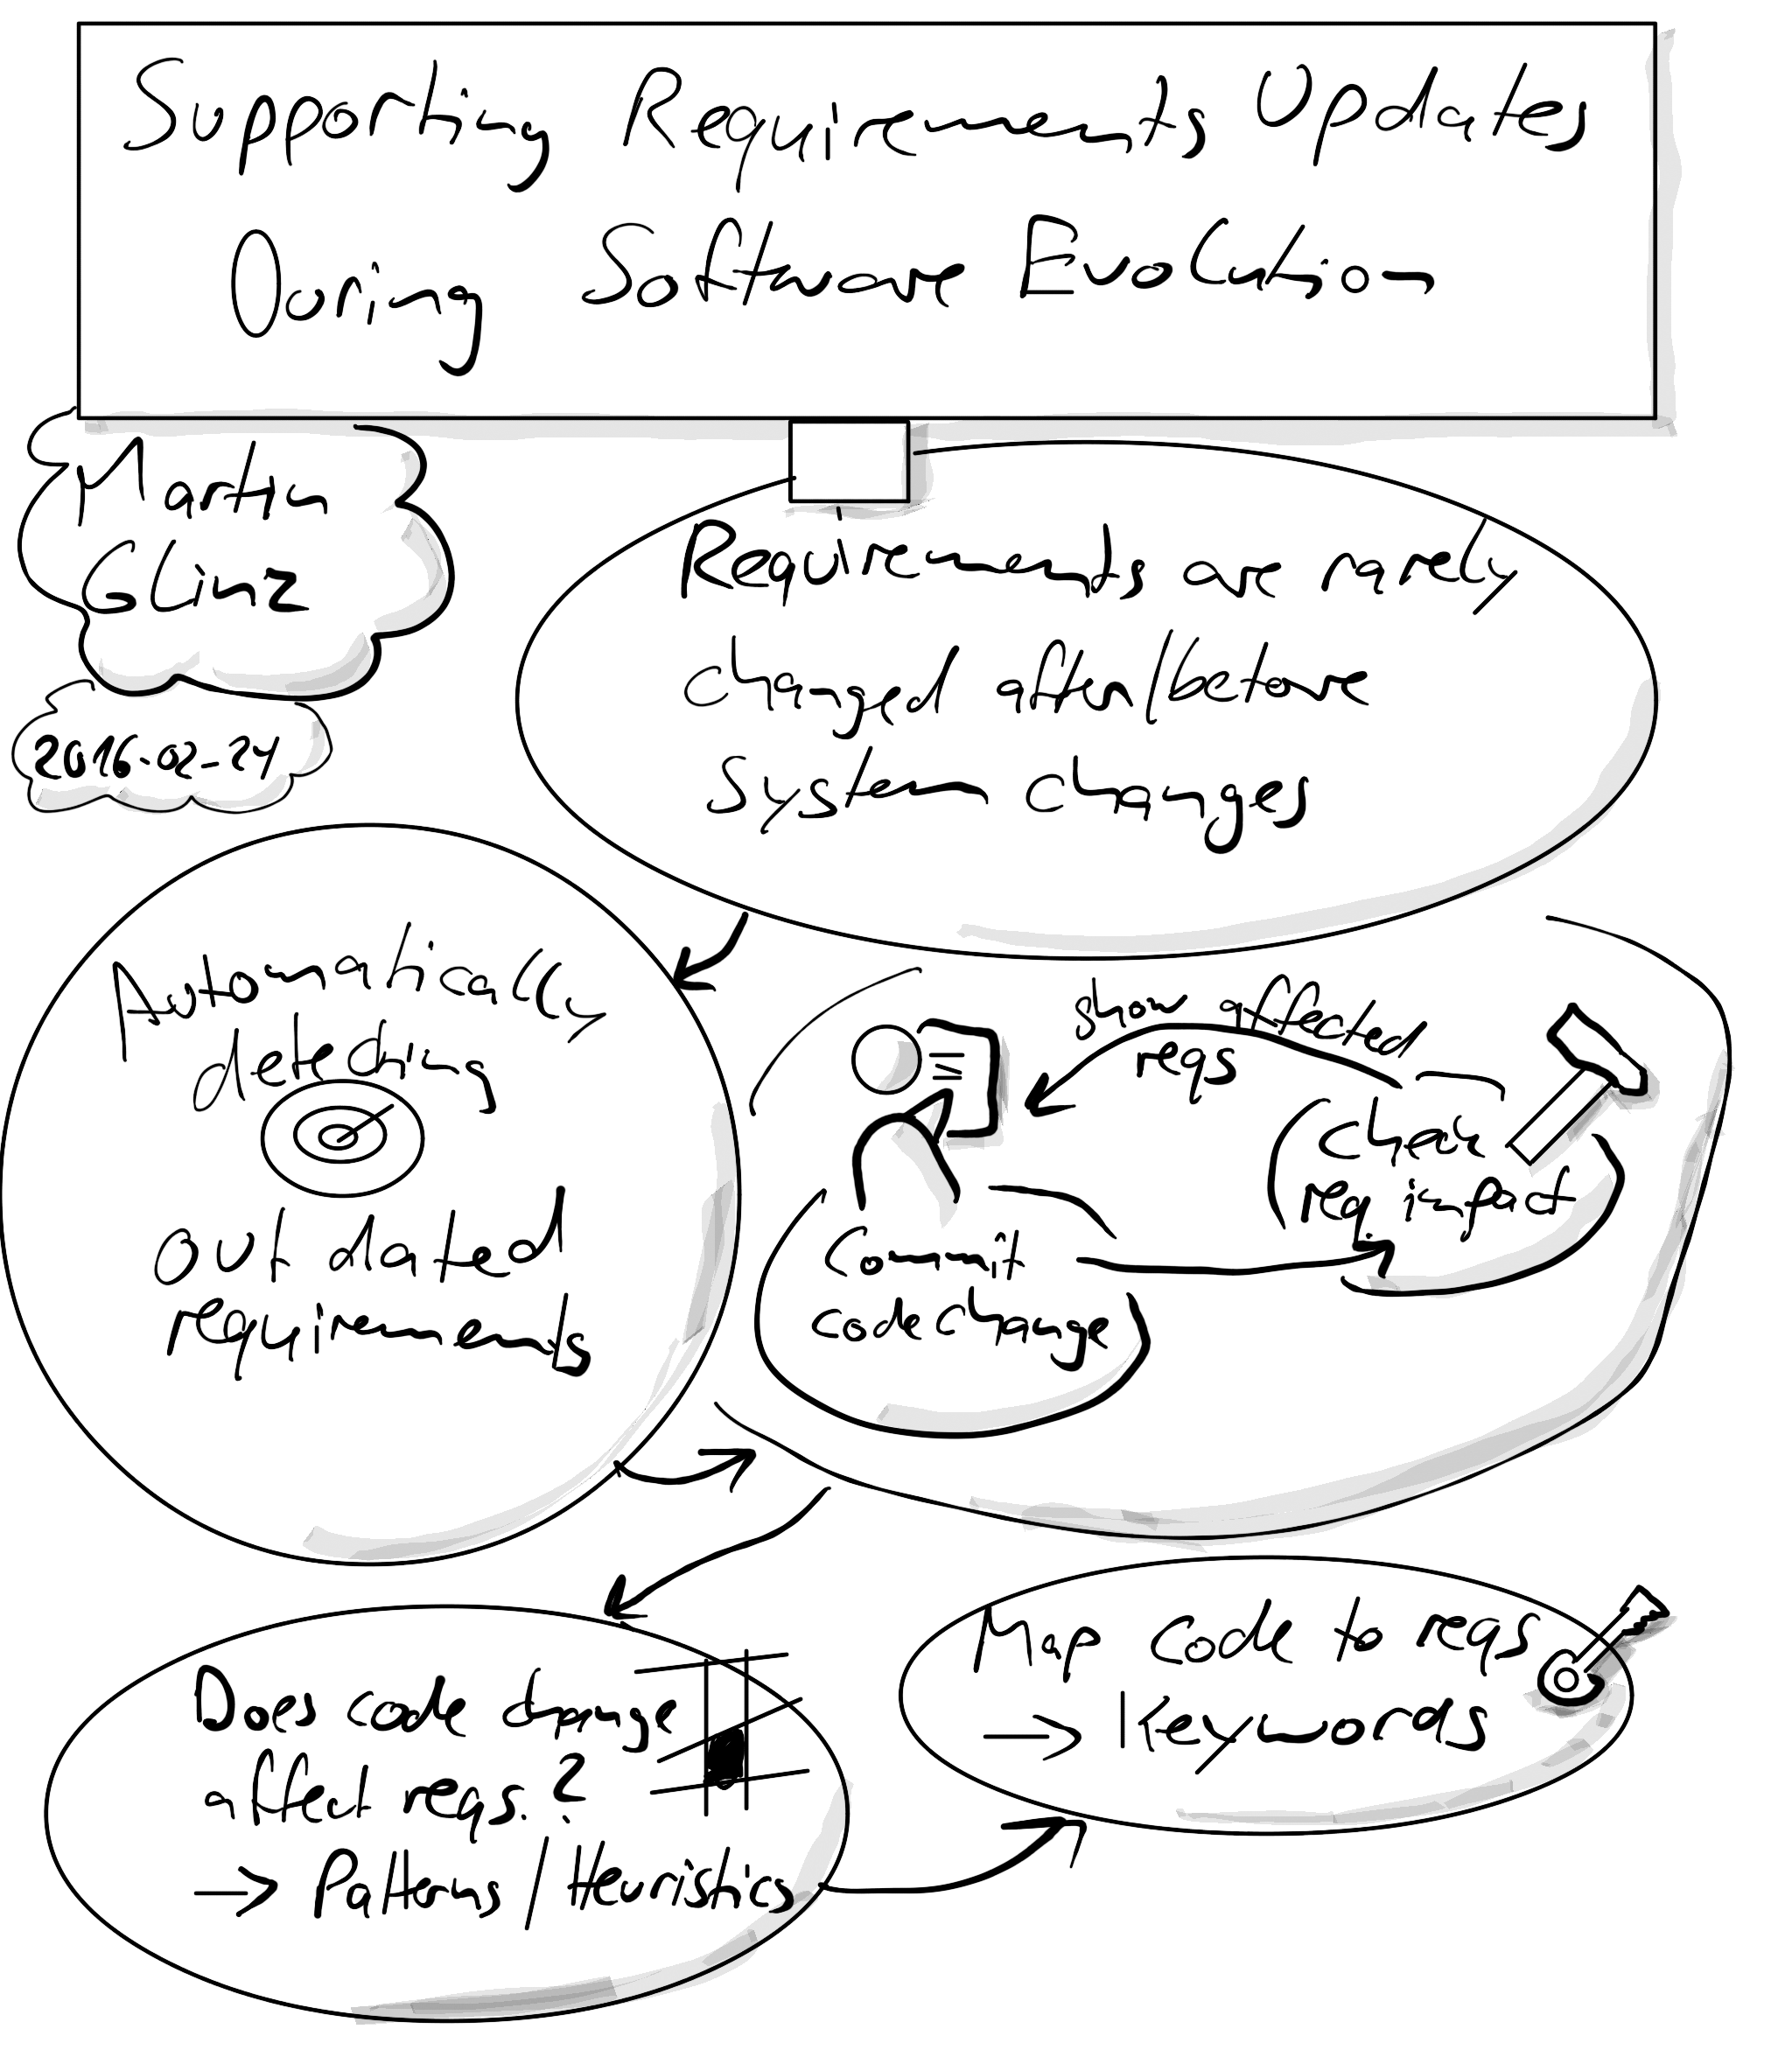 Supporting Requirements Updates
During Software Evolution
Martin
Glinz
2016-02-24
Requirements are rarely
changed after/before
System changes
Automatically
detecting
out dated
requirements
show affected
reqs
check
req. impact
Commit
code change
Does code change
affect reqs.?
-> Patterns/Heuristics
Map code to reqs
-> Keywords